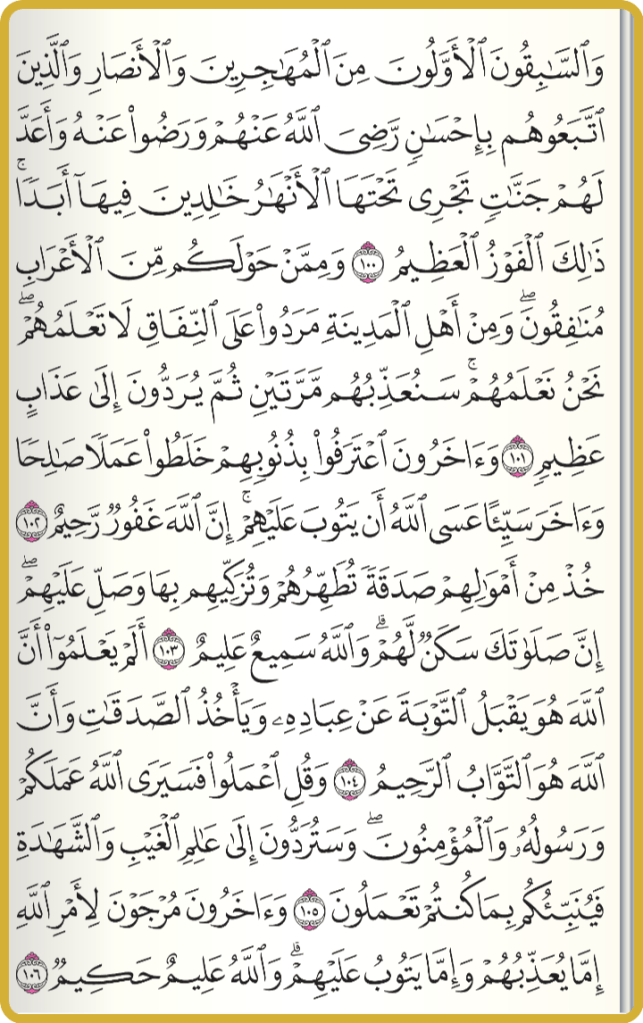 وَٱلسَّٰبِقُونَ ٱلْأَوَّلُونَ مِنَ ٱلْمُهَٰجِرِينَ وَٱلْأَنصَارِ وَٱلَّذِينَ
ٱتَّبَعُوهُم بِإِحْسَٰنٍ رَّضِىَ ٱللَّهُ عَنْهُمْ وَرَضُوا۟ عَنْهُ وَأَعَدَّ
لَهُمْ جَنَّٰتٍ تَجْرِى تَحْتَهَا ٱلْأَنْهَٰرُ خَٰلِدِينَ فِيهَآ أَبَدًا ۚ
ذَٰلِكَ ٱلْفَوْزُ ٱلْعَظِيمُ ١٠٠ وَمِمَّنْ حَوْلَكُم مِّنَ ٱلْأَعْرَابِ
مُنَٰفِقُونَ ۖ وَمِنْ أَهْلِ ٱلْمَدِينَةِ مَرَدُوا۟ عَلَى ٱلنِّفَاقِ لَا تَعْلَمُهُمْ ۖ
نَحْنُ نَعْلَمُهُمْ ۚ سَنُعَذِّبُهُم مَّرَّتَيْنِ ثُمَّ يُرَدُّونَ إِلَىٰ عَذَابٍ
عَظِيمٍ ١٠١ وَءَاخَرُونَ ٱعْتَرَفُوا۟ بِذُنُوبِهِمْ خَلَطُوا۟ عَمَلًا صَٰلِحًا
وَءَاخَرَ سَيِّئًا عَسَى ٱللَّهُ أَن يَتُوبَ عَلَيْهِمْ ۚ إِنَّ ٱللَّهَ غَفُورٌ رَّحِيمٌ ١٠٢
خُذْ مِنْ أَمْوَٰلِهِمْ صَدَقَةً تُطَهِّرُهُمْ وَتُزَكِّيهِم بِهَا وَصَلِّ عَلَيْهِمْ ۖ
إِنَّ صَلَوٰتَكَ سَكَنٌ لَّهُمْ ۗ وَٱللَّهُ سَمِيعٌ عَلِيمٌ ١٠٣ أَلَمْ يَعْلَمُوٓا۟ أَنَّ
ٱللَّهَ هُوَ يَقْبَلُ ٱلتَّوْبَةَ عَنْ عِبَادِهِۦ وَيَأْخُذُ ٱلصَّدَقَٰتِ وَأَنَّ
ٱللَّهَ هُوَ ٱلتَّوَّابُ ٱلرَّحِيمُ ١٠٤ وَقُلِ ٱعْمَلُوا۟ فَسَيَرَى ٱللَّهُ عَمَلَكُمْ
وَرَسُولُهُۥ وَٱلْمُؤْمِنُونَ ۖ وَسَتُرَدُّونَ إِلَىٰ عَٰلِمِ ٱلْغَيْبِ وَٱلشَّهَٰدَةِ
فَيُنَبِّئُكُم بِمَا كُنتُمْ تَعْمَلُونَ ١٠٥ وَءَاخَرُونَ مُرْجَوْنَ لِأَمْرِ ٱللَّهِ
إِمَّا يُعَذِّبُهُمْ وَإِمَّا يَتُوبُ عَلَيْهِمْ ۗ وَٱللَّهُ عَلِيمٌ حَكِيمٌ ١٠٦